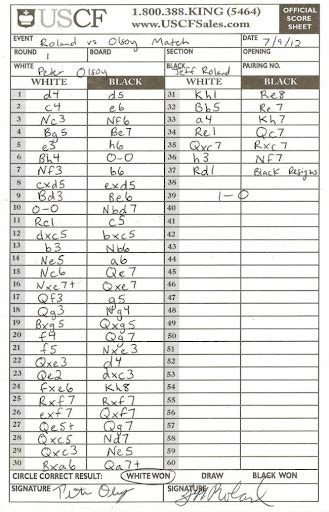 USCF
1.800.388.KING (5464)
www.USCFSales.com
OFFICIAL SCORE SHEET
EVENT Roland vs Olsoy Match DATE 7/9/12
ROUND 1 BOARD SECTION OPENING
WHITE Peter Olsoy BLACK Jeff Roland PAIRING NO.
WHITE BLACK WHITE BLACK
1 d4 d5 31 Kh1 Re8
2 c4 e6 32 Bb5 Re7
3 Nc3 Nf6 33 a4 Kh7
4 Bg5 Be7 34 Re1 Qc7
5 e3 h6 35 Qxc7 Rxc7
6 Bh4 0-0 36 h3 Nf7
7 Nf3 b6 37 Rd1 Black Resigns
8 cxd5 exd5 38
9 Bd3 Be6 39 1-0
10 0-0 Nbd7 40
11 Rc1 c5 41
12 dxc5 bxc5 42
13 b3 Nb6 43
14 Ne5 a6 44
15 Nc6 Qe7 45
16 Nxe7+ Qxe7 46
17 Qf3 g5 47
18 Qg3 Ng4 48
19 Bxg5 Qxg5 49
20 f4 Qg7 50
21 f5 Nxe3 51
22 Qxe3 d4 52
23 Qe2 dxc3 53
24 fxe6 Kh8 54
25 Rxf7 Rxf7 55
26 exf7 Qxf7 56
27 Qe5+ Qg7 57
28 Qxc5 Nd7 58
29 Qxc3 Ne5 59
30 Bxa6 Qa7+ 60
CIRCLE CORRECT RESULT: WHITE WON DRAW BLACK WON
SIGNATURE Peter Olsoy SIGNATURE